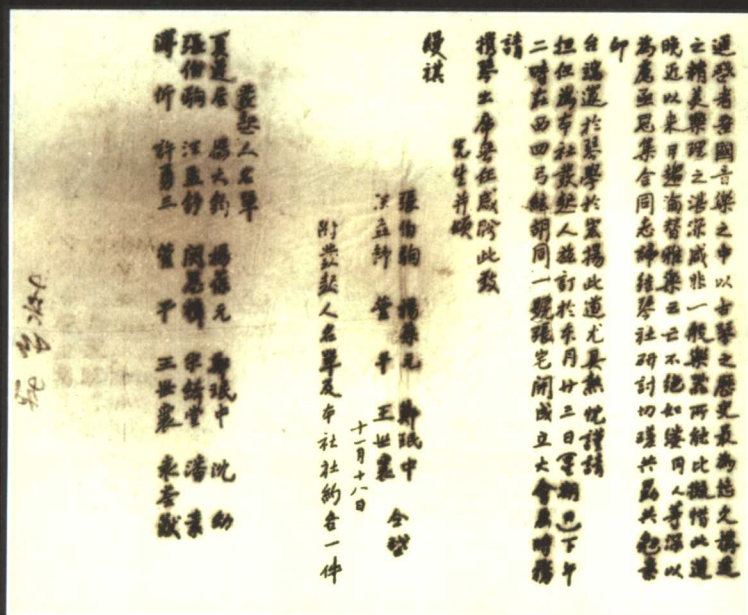 逕啓者吾國音樂之中以古琴之歷史最為悠久構造
之精美樂理之湛深咸非一般樂器所能比擬惜此道
晚近以來日趨淪替雅樂云亡不絕如縷同人等深以
為慮亟思集合同志締結琴社研討切磋共勗共勉素
仰
台端邃於琴學於宏揚此道尤具熱忱謹請
担任為本社發起人茲訂於本月廿三日星期日下午
二時在西四弓絃胡同一號張宅開成立大會屆時務
請
攜琴出席毋任感盼此致
縵祺
先生并頌
張伯駒 楊葆元 鄭珉中
汪孟舒 管平 王世襄 仝啓
十一月十八日
附發起人名單及本社社約各一件
發起人名單
夏蓮居 楊大鈞 楊葆元 鄭珉中 沈幼
張伯駒 汪孟舒 關恩輯 潘素
溥忻 許勇三 管平 王世襄 袁荃猷